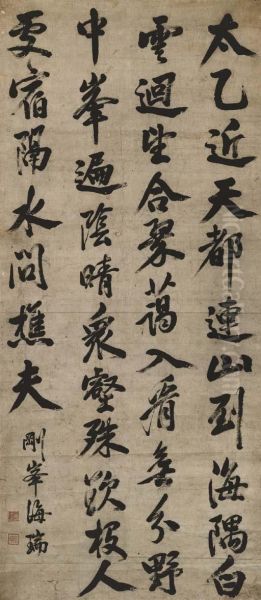 太乙近天都連山到海隅白
雲迴望合翠藹入看無分野
中峯遍陰晴衆壑殊欲投人
處宿隔水問樵夫
剛峯海瑞